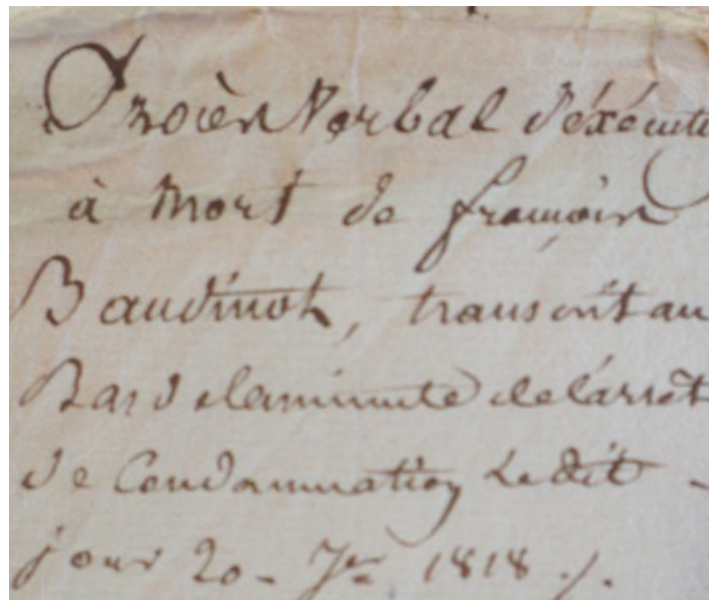 Procès Verbal d'éxécuti
à Mort de françois
Baudinot, transcrit au
Bas de la minute de l'arrêt
de Condamnation Ledit -
jour 20 - 7re 1818 ./.